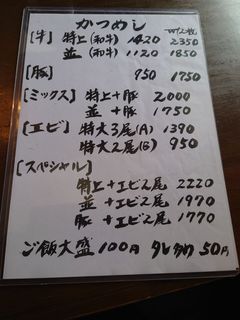 かつめし
W/2枚
[牛] 特上(和牛) 1420 2350
並(和牛) 1120 1850
[豚] 950 1750
[ミックス] 特上+豚 2000
並+豚 1750
[エビ] 特大3尾(A) 1390
特大2尾(B) 950
[スペシャル]
特上+エビ2尾 2220
並+エビ2尾 1970
豚+エビ2尾 1770
ご飯大盛 100円 タレ多め 50円